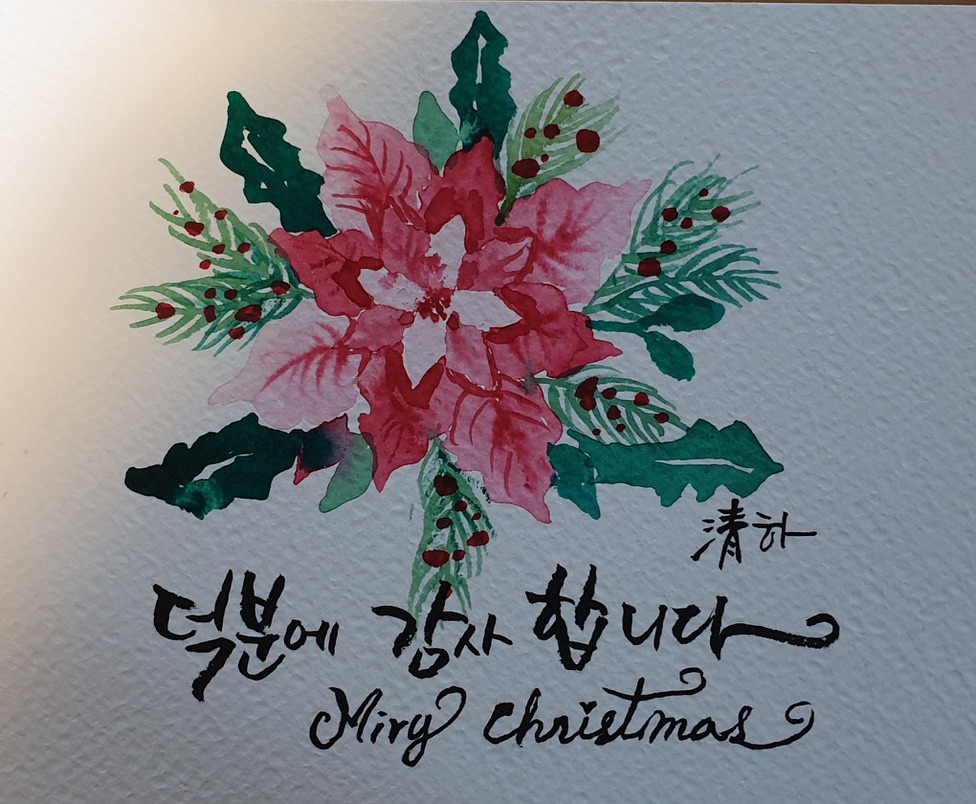 淸하
덕분에 감사합니다
Miry Christmas